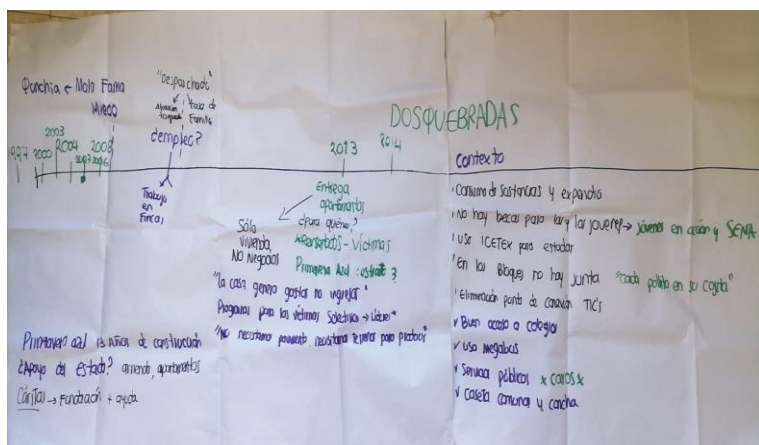 Quinchia ← Mala Fama
MIEDO
"Desparchado"
Familia
¿empleo?
Trabajo
en
Fincas
1997
2000
2003
2004
2008
2013
2014
DOSQUEBRADAS
Entrega
apartamentos
¿para quién?
Víctimas
Primavera Azul : estrato 3
Sólo
vivienda,
NO Negocios
"La casa genera gastos no ingresos"
Programas para las víctimas Selectivos → Líderes
"No necesitamos pavimento necesitamos Terrenos para producir"
Primavera azul 13 años de construcción
¿Apoyo del estado? arriendo, apartamentos
Cáritas → Fundación + ayuda
contexto
Consumo de sustancias y expendio
No hay becas para las y los jóvenes → jóvenes en acción y SENA
Uso ICETEX para estudiar
En los Bloques no hay junta "cada pollito en su cajita"
Eliminación punto de conexión TIC's
✓ Buen acceso a colegios
✓ uso megabus
✓ Servicios públicos x caros x
✓ Caseta comunal y cancha